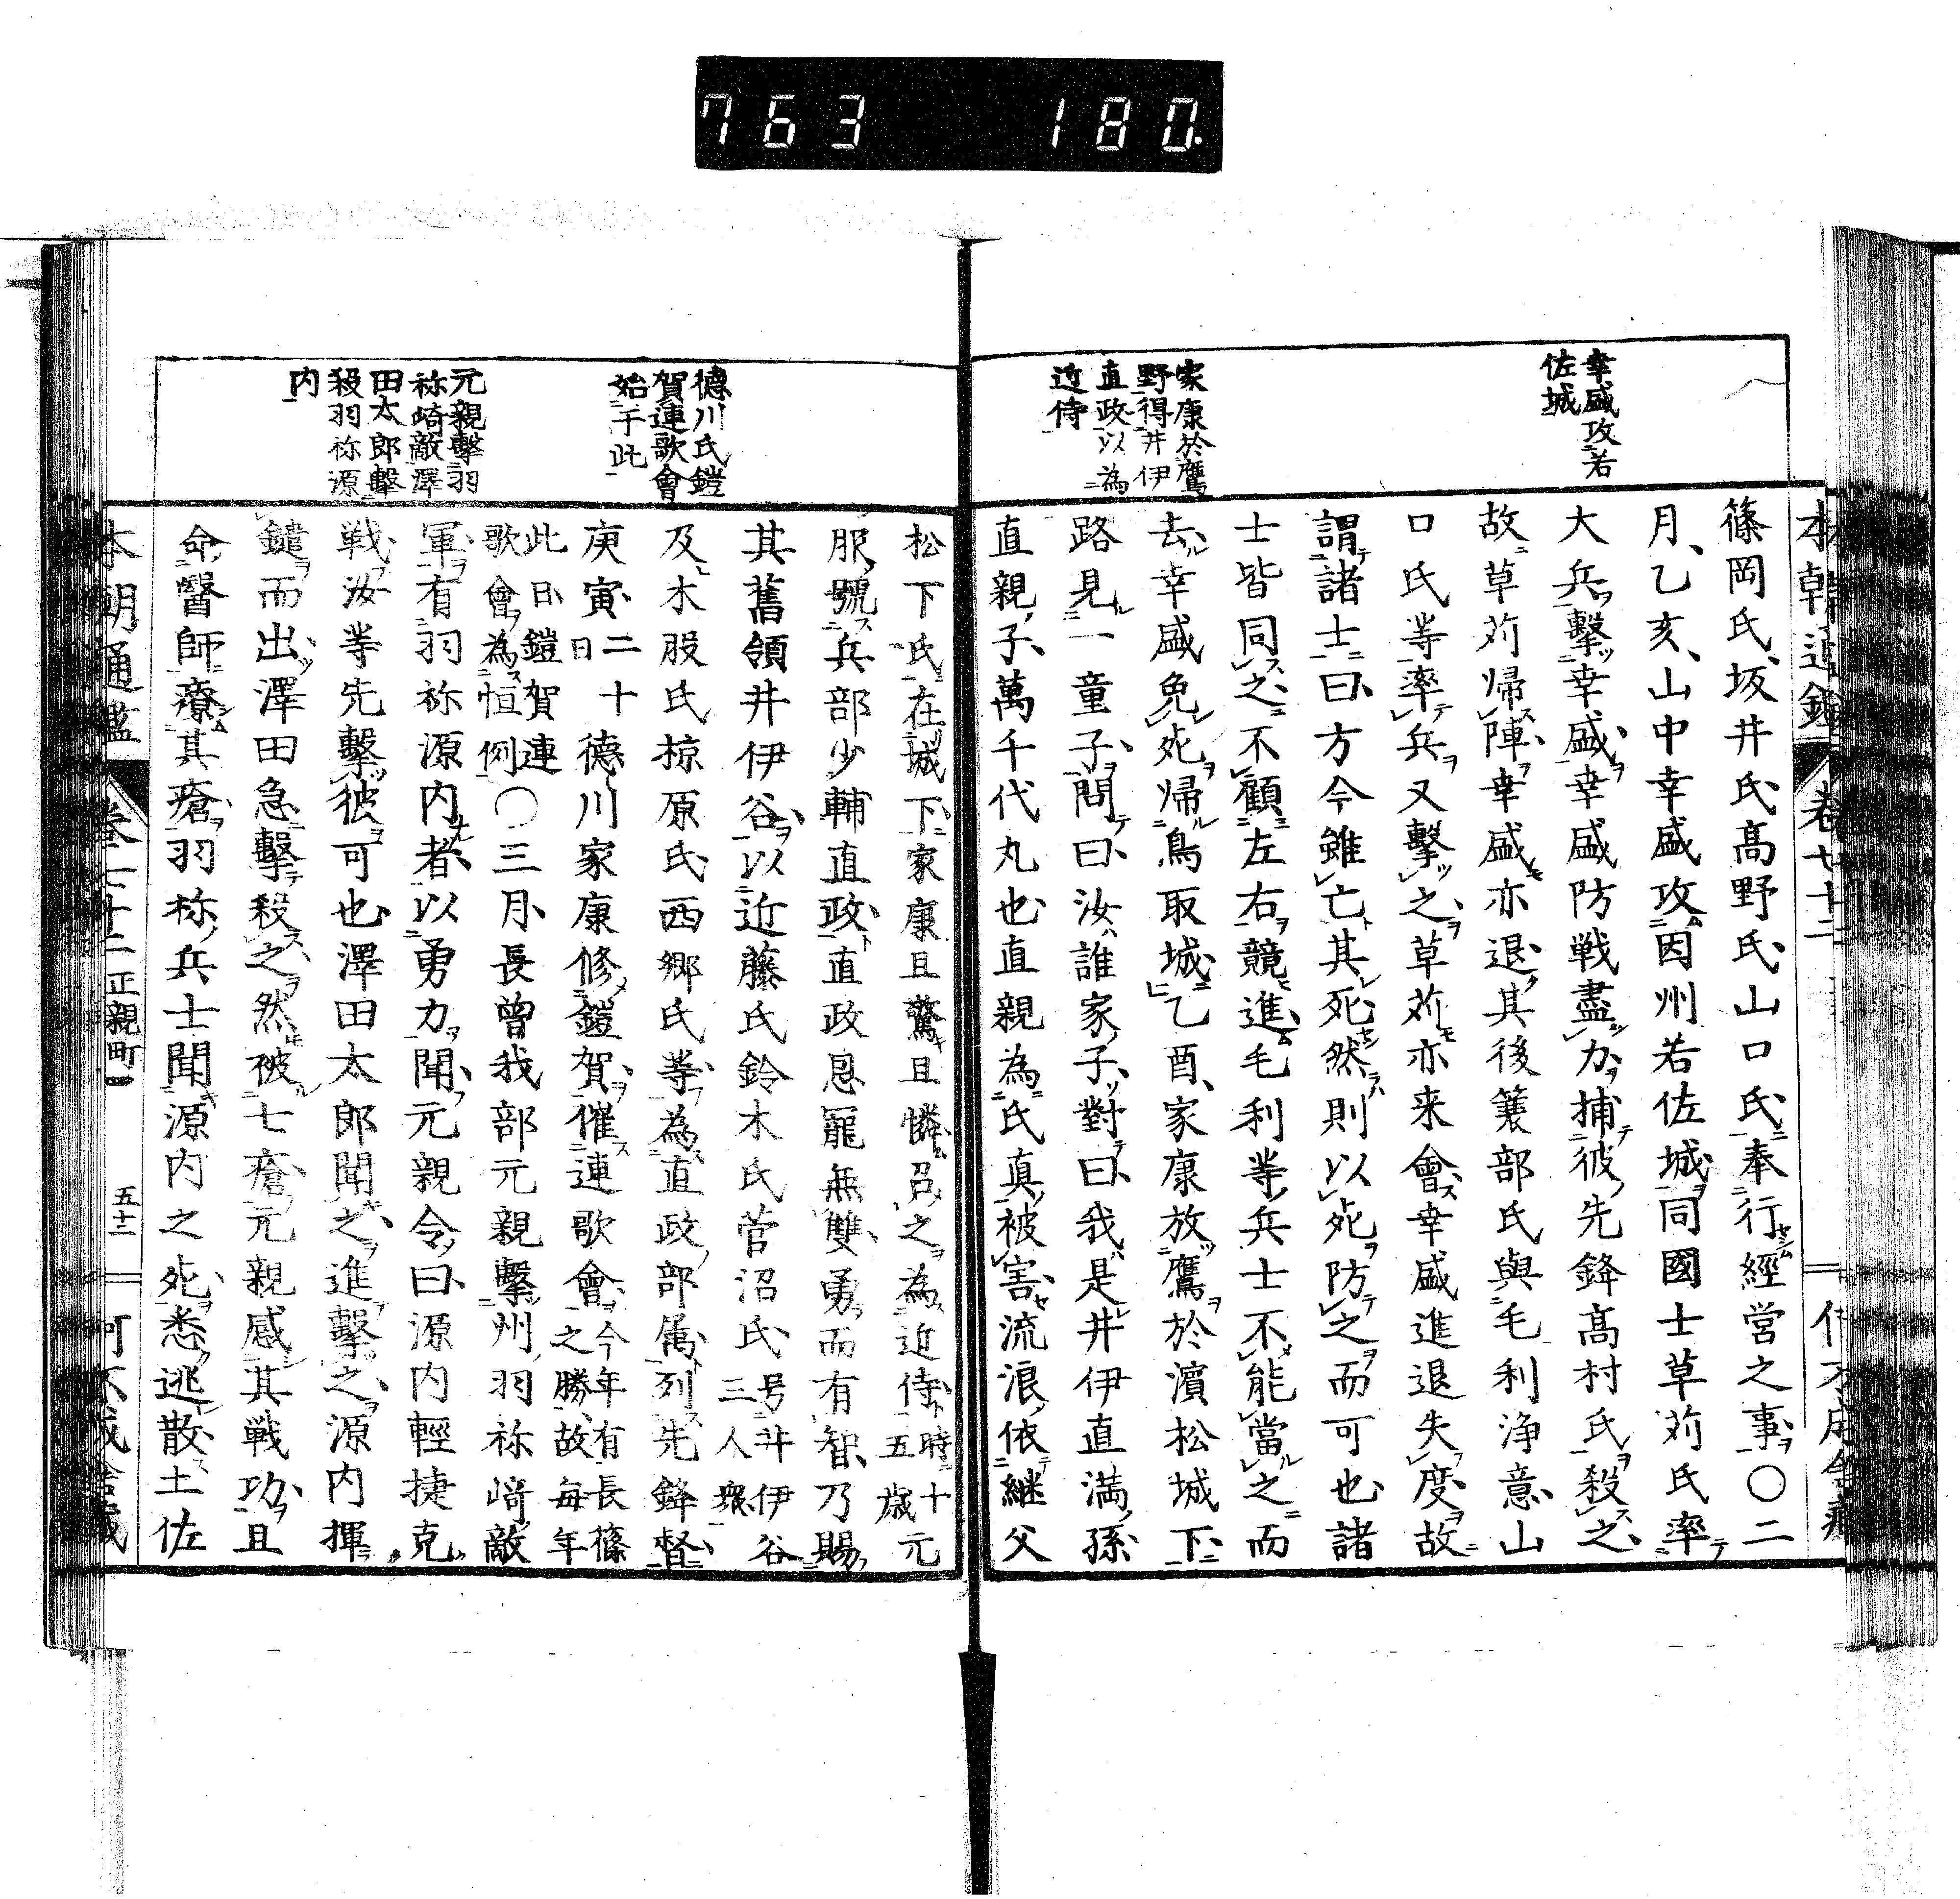 763 180.
幸盛攻若
佐城
家康於鷹
野得井伊
直政以為
近侍
篠岡氏坂井氏高野氏山口氏奉行經営之事〇二
月乙亥山中幸盛攻因州若佐城同國士草苅氏率
大兵擊幸盛幸盛防戦盡力捕彼先鋒高村氏殺之
故草苅帰陣幸盛亦退其後簑部氏與毛利浄意山
口氏等率兵又擊之草苅亦来會幸盛進退失度故
謂諸士曰方今雖亡其死然則以死防之而可也諸
士皆同之不顧左右競進毛利等兵士不能當之而
去幸盛免死帰鳥取城乙酉家康放鷹於濱松城下
路見一童子問曰汝誰家子對曰我是井伊直満孫
直親子萬千代丸也直親為氏真被害流浪依継父
徳川氏鎧
賀連歌會
始于此
元親擊羽
祢崎敵澤
田太郎擊
殺羽祢源
内
松下氏在城下家康且驚且憐召之為近侍時十五歳元
服號兵部少輔直政直政恩寵無雙勇而有智乃賜
其舊領井伊谷以近藤氏鈴木氏菅沼氏号井伊谷三人衆
及木股氏椋原氏西郷氏等為直政部属列先鋒督
庚寅二十日徳川家康修鎧賀催連歌會今年有長篠之勝故毎年
此日鎧賀連歌會為恒例〇三月長曾我部元親擊州羽祢崎敵
軍有羽祢源内者以勇力聞元親令曰源内輕捷克
戦汝等先擊彼可也澤田太郎聞之進擊之源内揮
鑓而出澤田急擊殺之然被七瘡元親感其戦功且
命醫師療其瘡羽祢兵士聞源内之死悉逃散土佐
本朝通鑑 卷七十二 正親町一 五十二